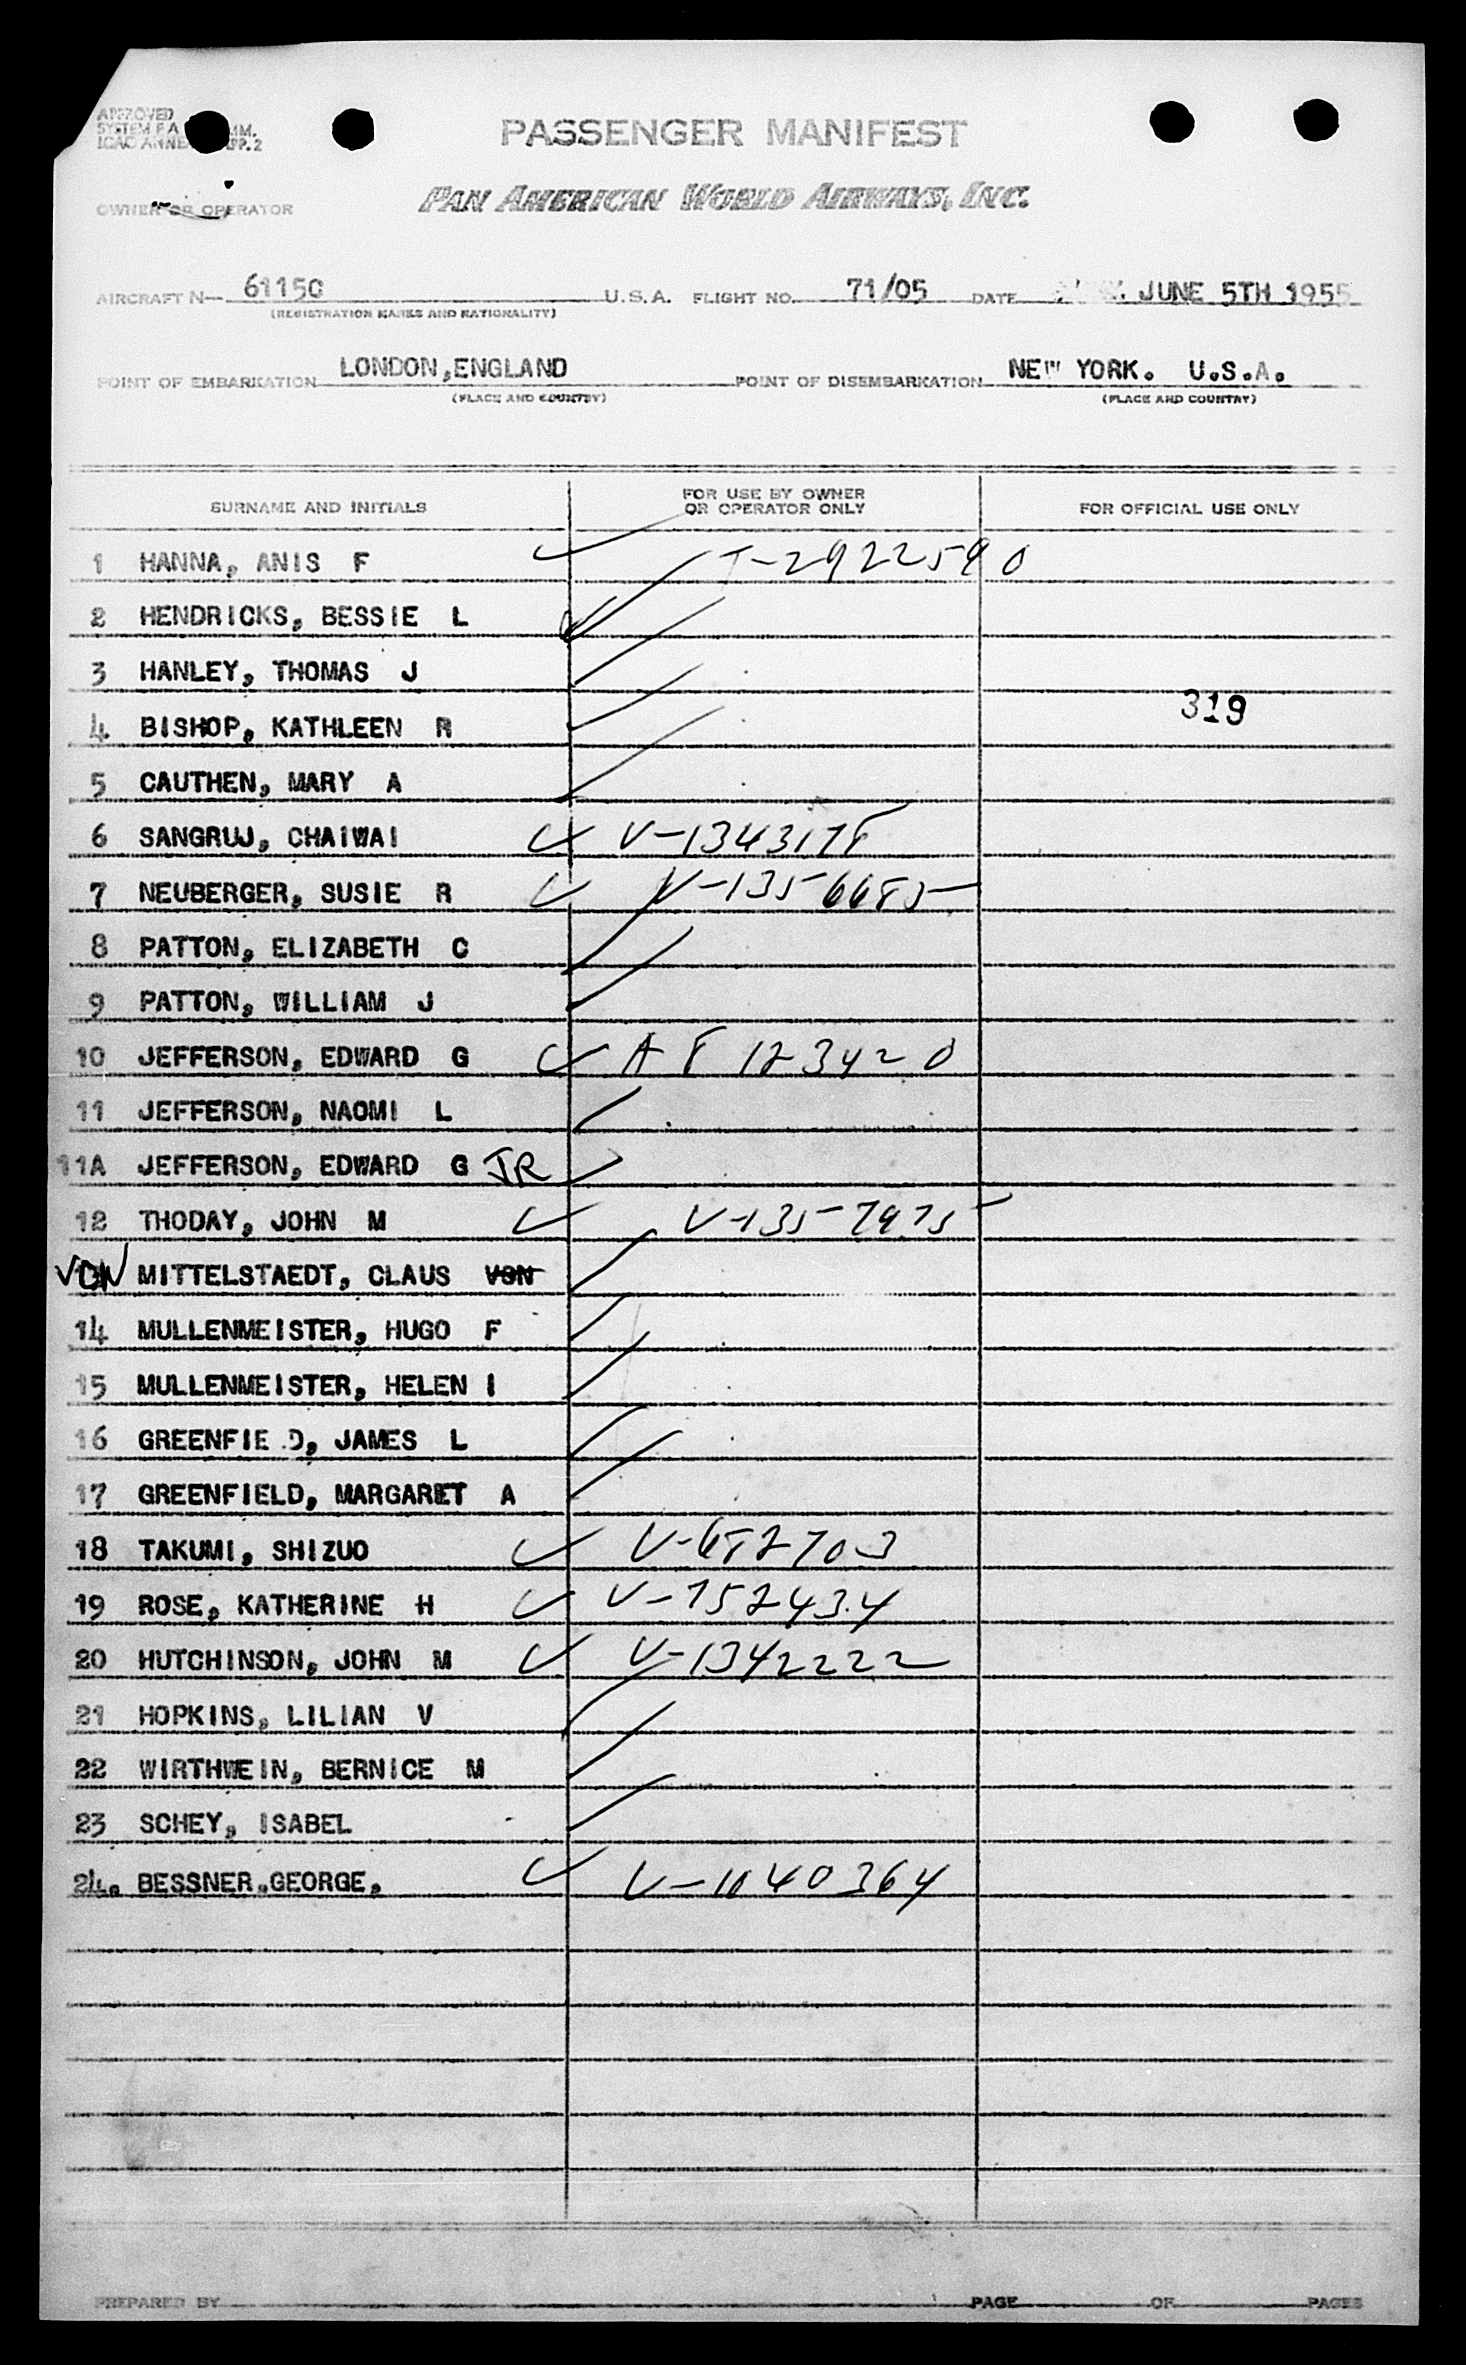 APPROVED
SYSTEM F A MM.
ICAO ANNEX APP.2
PASSENGER MANIFEST
OWNER OR OPERATOR PAN AMERICAN WORLD AIRWAYS, INC.
AIRCRAFT N— 6115C U.S.A. FLIGHT NO. 71/05 DATE JUNE 5TH 1955
(REGISTRATION MARKS AND NATIONALITY)
POINT OF EMBARKATION LONDON,ENGLAND POINT OF DISEMBARKATION NEW YORK. U.S.A.
(PLACE AND COUNTRY) (PLACE AND COUNTRY)
SURNAME AND INITIALS FOR USE BY OWNER OR OPERATOR ONLY FOR OFFICIAL USE ONLY
1 HANNA, ANIS F T-2922590
2 HENDRICKS, BESSIE L
3 HANLEY, THOMAS J
319
4 BISHOP, KATHLEEN R
5 CAUTHEN, MARY A
6 SANGRUJ, CHAIWAI V-1343178
7 NEUBERGER, SUSIE R V-1356685
8 PATTON, ELIZABETH C
9 PATTON, WILLIAM J
10 JEFFERSON, EDWARD G A8 123420
11 JEFFERSON, NAOMI L
11A JEFFERSON, EDWARD G JR
12 THODAY, JOHN M V-1357975
VON MITTELSTAEDT, CLAUS VON
14 MULLENMEISTER, HUGO F
15 MULLENMEISTER, HELEN I
16 GREENFIE D, JAMES L
17 GREENFIELD, MARGARET A
18 TAKUMI, SHIZUO V-682703
19 ROSE, KATHERINE H V-752434
20 HUTCHINSON, JOHN M V-1342222
21 HOPKINS, LILIAN V
22 WIRTHWEIN, BERNICE M
23 SCHEY, ISABEL
24. BESSNER.GEORGE, V-1040364
PREPARED BY PAGE OF PAGES